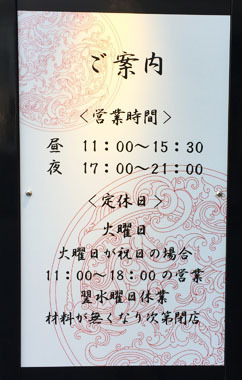 ご案内
＜営業時間＞
昼 11：00〜15：30
夜 17：00〜21：00
＜定休日＞
火曜日
火曜日が祝日の場合
11：00〜18：00の営業
翌水曜日休業
材料が無くなり次第閉店